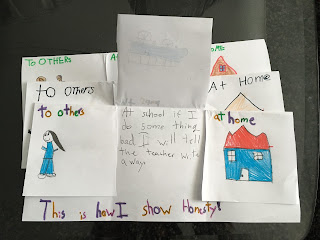 To OTHERS
to others
to others
At school if I
do some thing
bad I will tell
the teacher write
a way
At Home
at home
This is how I show Honesty!